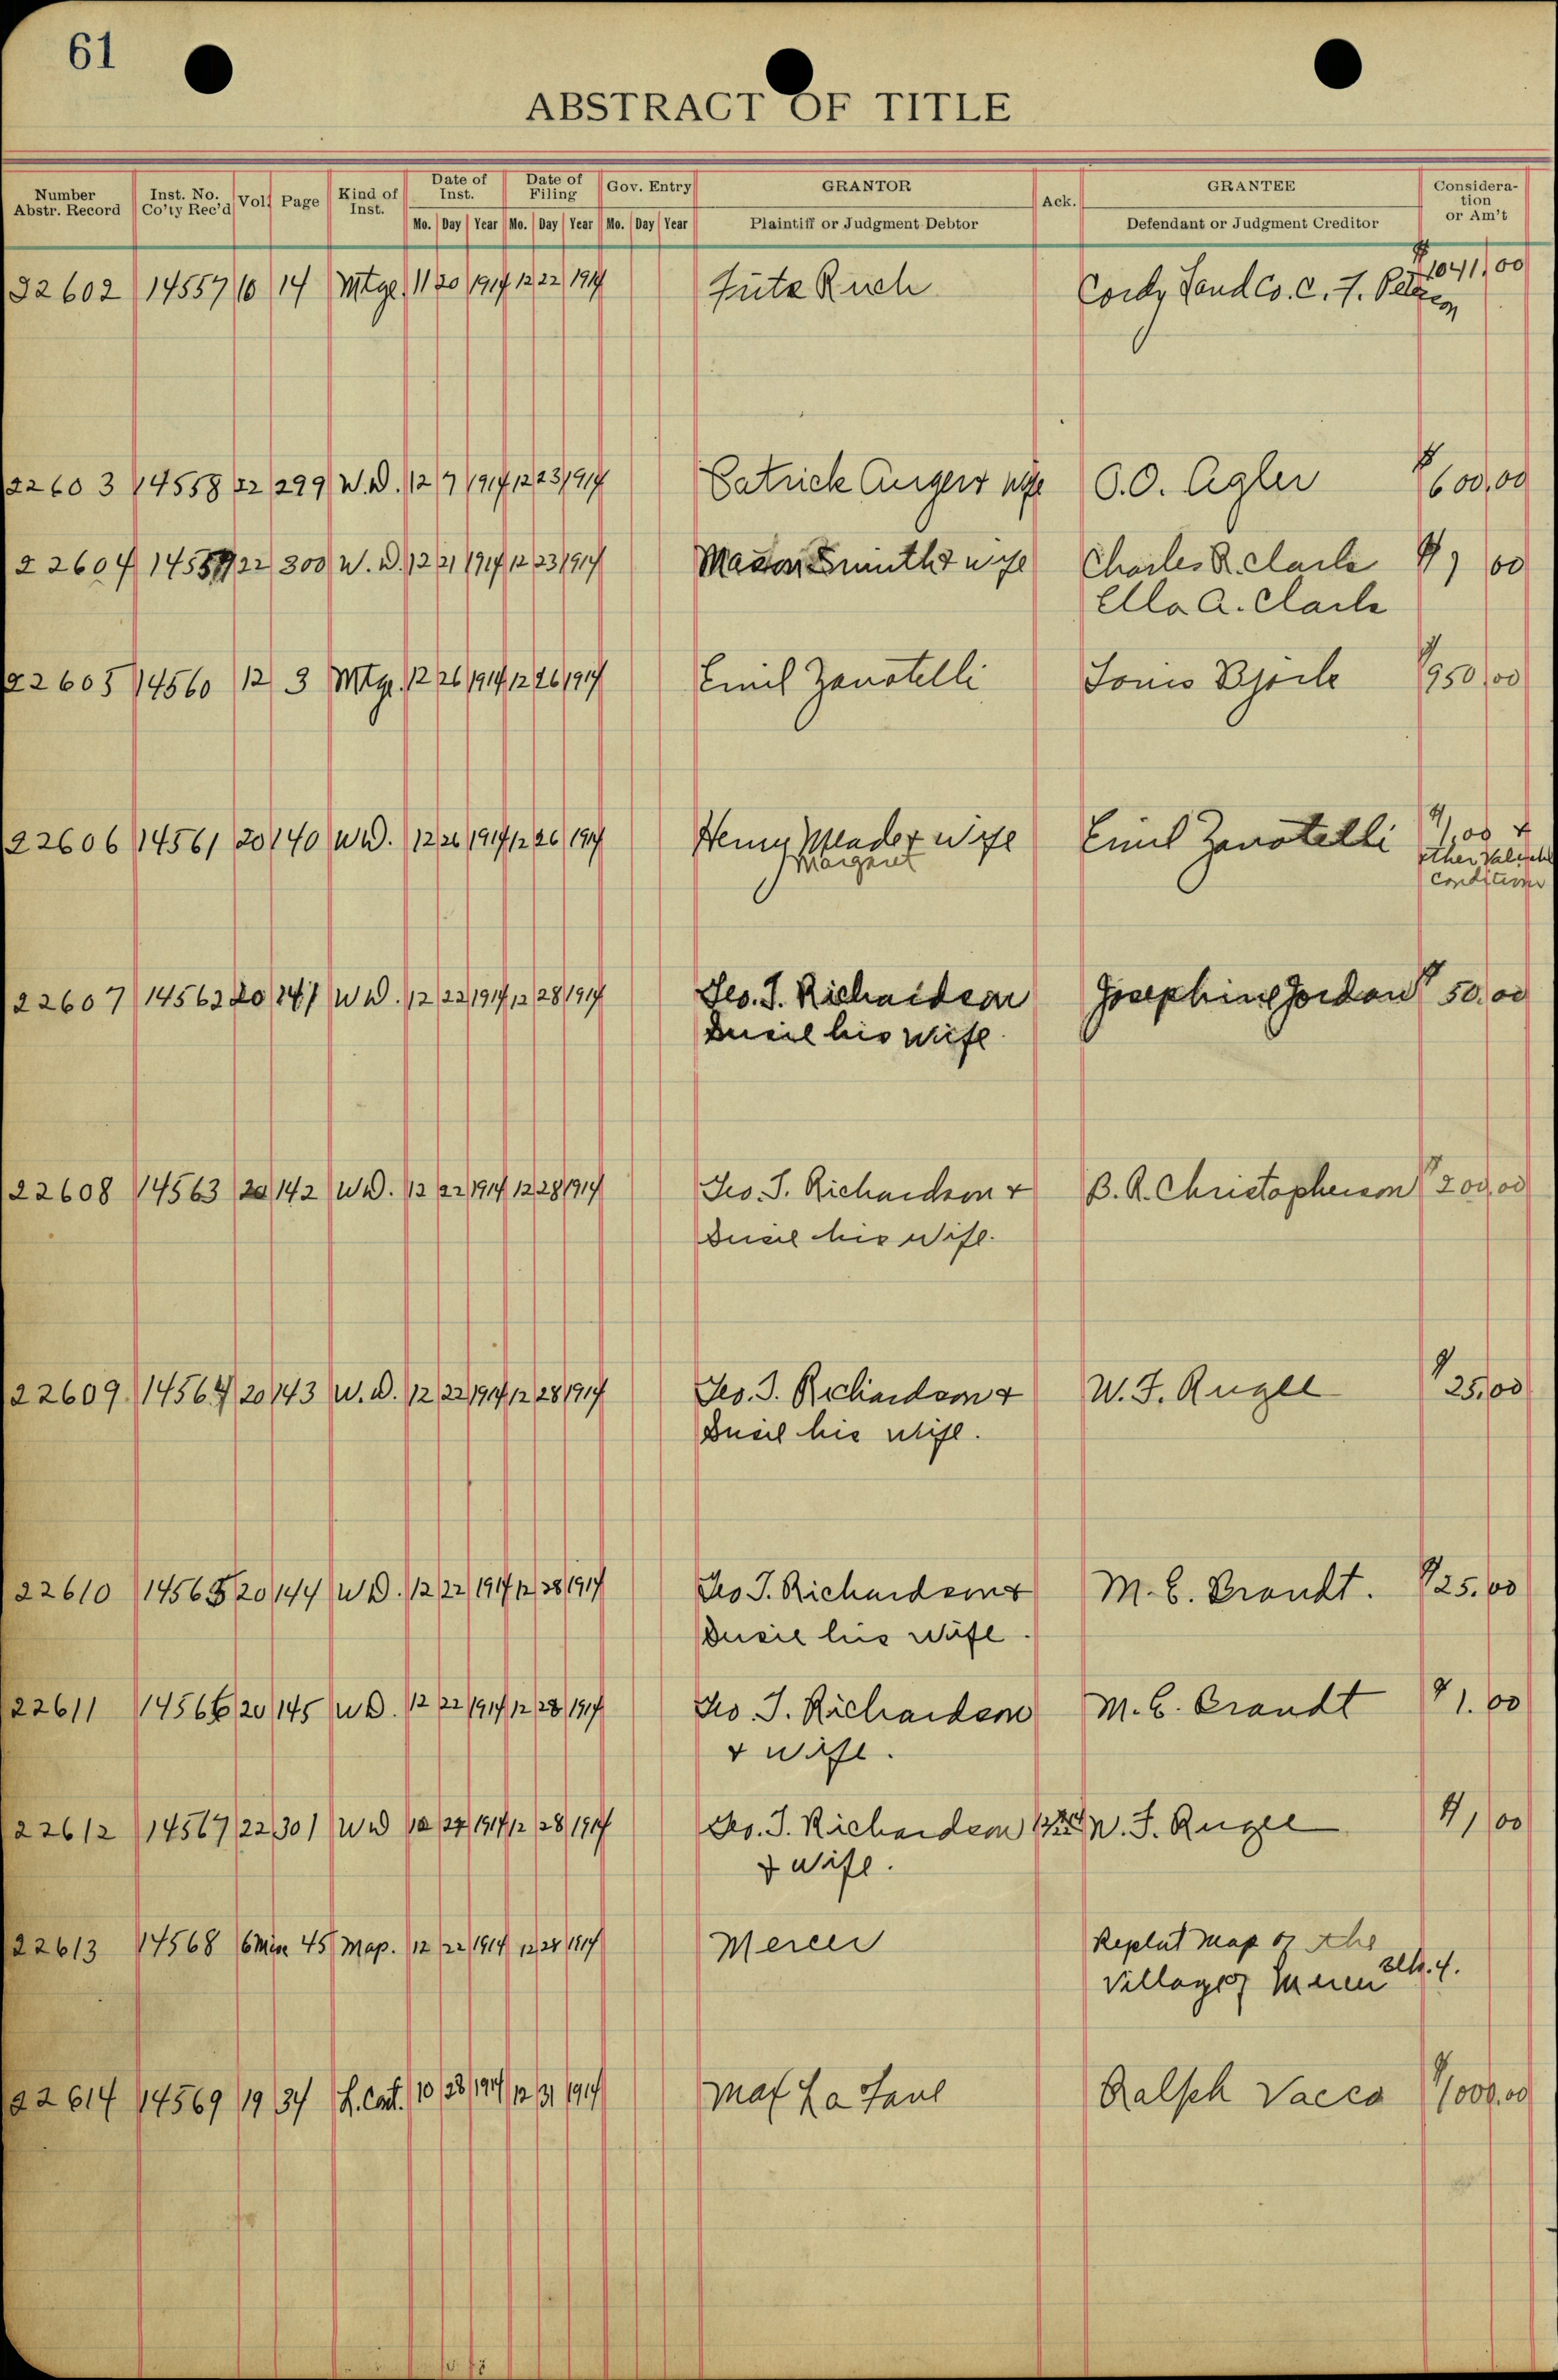 61
ABSTRACT OF TITLE
Number Abstr. Record Inst. No. Co'ty Rec'd Vol. Page Kind of Inst. Date of Inst. Date of Filing Gov. Entry GRANTOR Ack. GRANTEE Considera-tion or Am't
Mo. Day Year Mo. Day Year Mo. Day Year Plaintiff or Judgment Debtor Defendant or Judgment Creditor
22602 14557 10 14 Mtge. 11 20 1914 12 22 1914 Ruch Cordy Land Co. C. F. $1041.00
22603 14558 22 299 W.D. 12 7 1914 12 23 1914 Patrick & wife O.O. Agler $600.00
22604 14559 22 300 W.D. 12 21 1914 12 23 1914 Mason Smith & wife Charles R. Clark $1 00
Ella A. Clark
22605 14560 12 3 Mtge. 12 26 1914 12 26 1914 Emil Zanotelli Louis Bjork $950.00
22606 14561 20 140 W.D. 12 26 1914 12 26 1914 Henry Meade & wife Emil Zanotelli $1.00 &
Margaret other
22607 14562 20 141 W.D. 12 22 1914 12 28 1914 Geo. T. Richardson Josephine Jordan $50.00
his wife.
22608 14563 20 142 W.D. 12 22 1914 12 28 1914 Geo. T. Richardson & B. R. Christopherson $200.00
his wife.
22609 14564 20 143 W.D. 12 22 1914 12 28 1914 Geo. T. Richardson & W. F. Rugee $25.00
his wife.
22610 14565 20 144 W.D. 12 22 1914 12 28 1914 Geo T. Richardson & M. E. Brandt. $25.00
his wife.
22611 14566 20 145 W.D. 12 22 1914 12 28 1914 Geo T. Richardson M. E. Brandt $1.00
& wife.
22612 14567 22 301 W.D. 1914 12 28 1914 Geo. T. Richardson W. F. Rugee $1.00
& wife.
22613 14568 6 Misc 45 Map. 12 22 1914 12 28 1914 Mercer Replat Map of the
Village of Mercer Blk. 4.
22614 14569 19 34 10 28 1914 12 31 1914 Ralph Vacco $1000.00